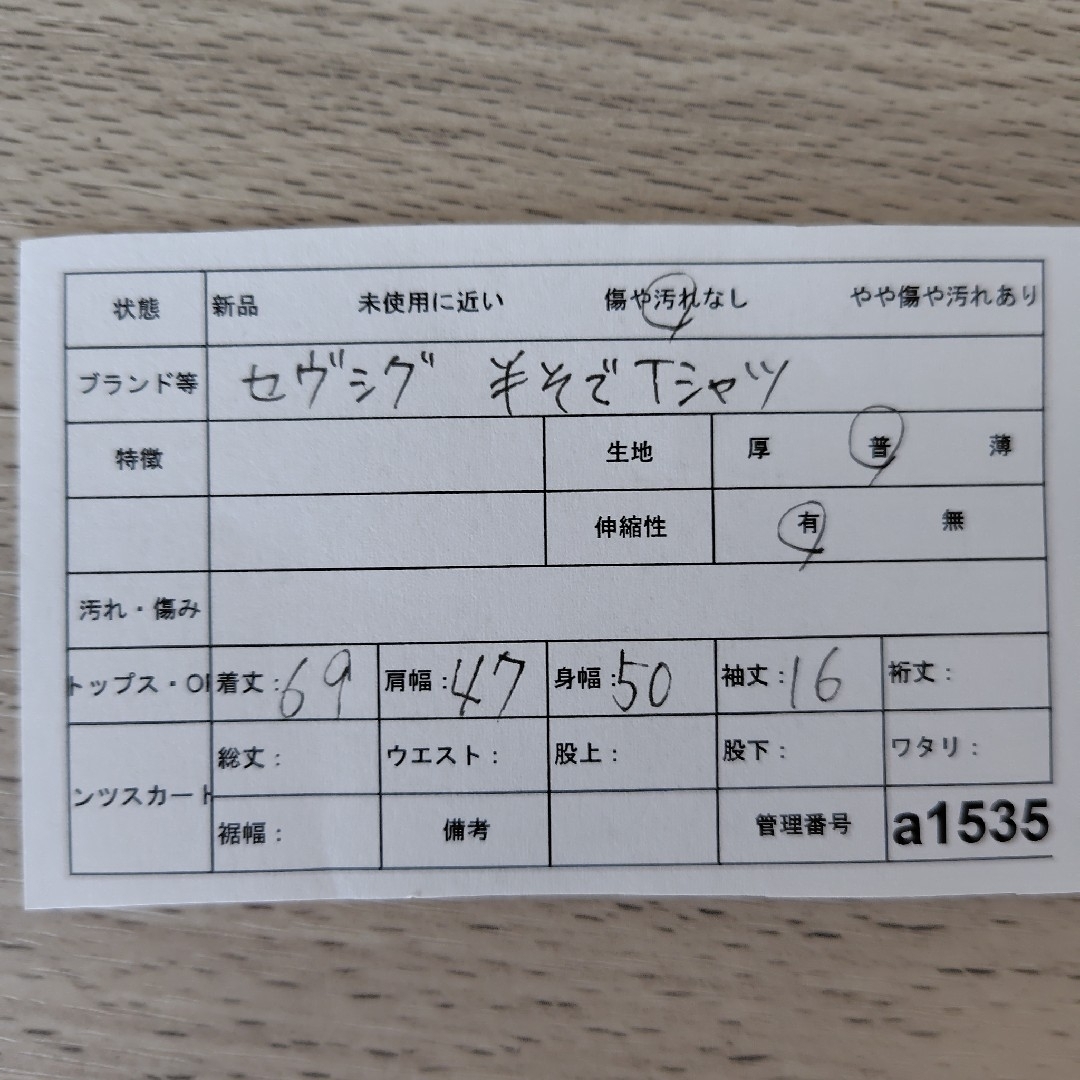 状態 新品 未使用に近い 傷や汚れなし やや傷や汚れあり
ブランド等 セヴシグ 半そでTシャツ
特徴 生地 厚 普 薄
伸縮性 有 無
汚れ・傷み
トップス・O 着丈:69 肩幅:47 身幅:50 袖丈:16 裄丈:
ンツスカート 総丈: ウエスト: 股上: 股下: ワタリ:
裾幅: 備考 管理番号 a1535